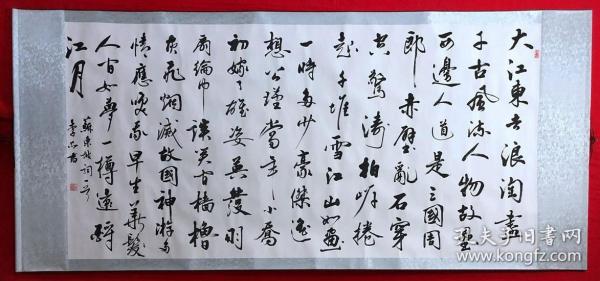 大江東去浪淘盡
千古風流人物故壘
西邊人道是三國周
郎赤壁亂石穿
空驚濤拍岸捲
起千堆雪江山如畫
一時多少豪傑遙
想公瑾當年小喬
初嫁了雄姿英發羽
扇綸巾談笑間檣櫓
灰飛烟滅故國神游多
情應笑我早生華髮
人間如夢一樽還酹
江月
蘇東坡詞一首
孔夫子旧书网
www.kongfz.com